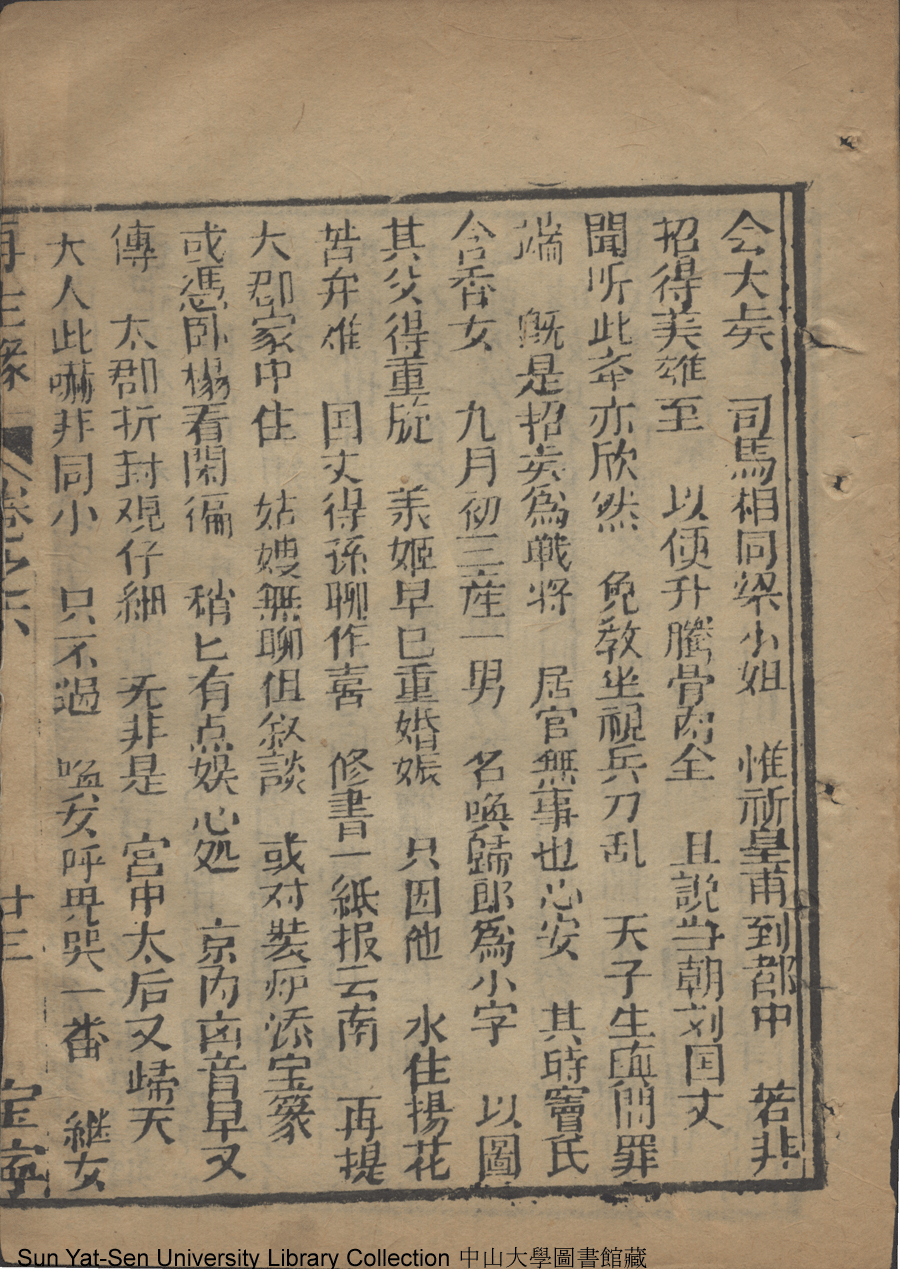 会大矣 司馬相同梁小姐 惟祈皇甫到都中 若非
招得美雄至 以便升騰骨肉全 且説当朝刘国丈
聞听此卆亦欣然 免教坐視兵刀乱 天子生嗔問罪
端 既是招矣為戰将 居官無事也心安 其時竇氏
含香女 九月初三産一男 名喚歸郎為小字 以圖
其父得重旋 美姬早已重婚娠 只因他 水住揚花
苦弃难 国丈得孫聊作喜 修書一紙报云南 再提
大郡家中住 姑嫂無聊但叙談 或对裝炉添宝篆
或憑卧榻看閑徧 稍匕有点娱心処 京内凶音早又
傳 太郡折封观仔細 无非是 宮中太后又歸天
大人此嚇非同小 只不過 喚女呼男哭一番 継女
再生緣 卷之六 廿三 宝寧
Sun Yat-Sen University Library Collection 中山大學圖書館藏